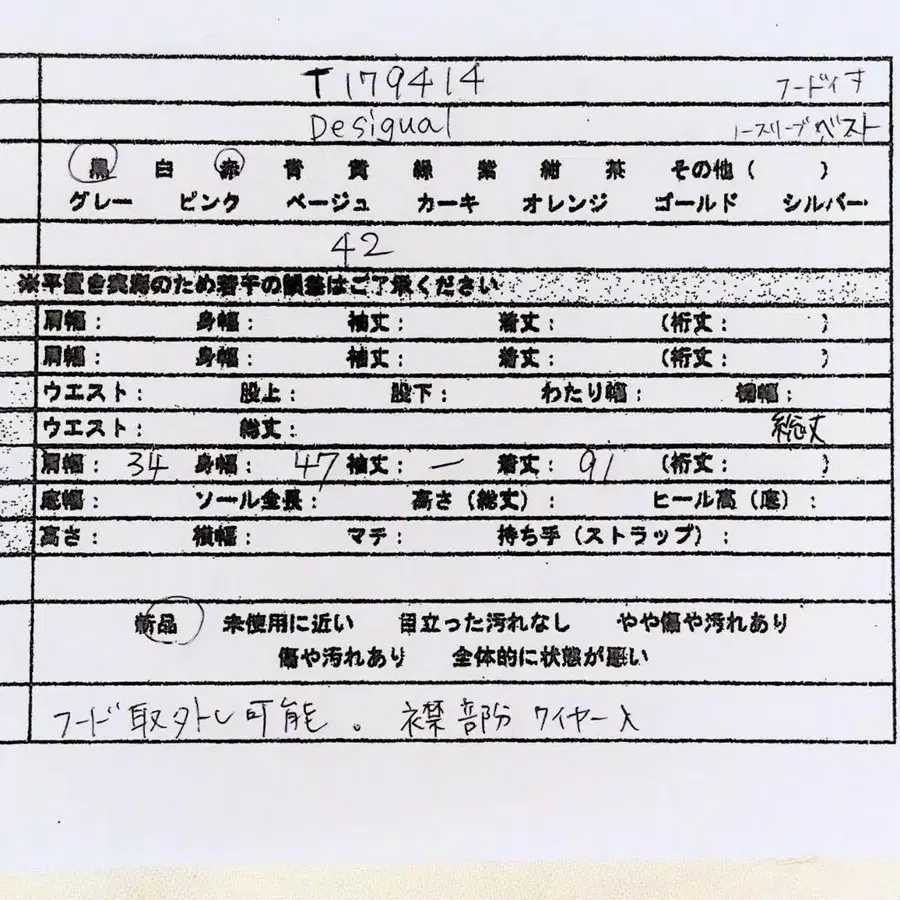 T179414 フード付き
Desigual ノースリーブベスト
黒 白 赤 青 黄 緑 紫 紺 茶 その他( )
グレー ピンク ベージュ カーキ オレンジ ゴールド シルバー
42
※平置き実寸のため若干の誤差はご了承ください
肩幅: 身幅: 袖丈: 着丈: (裄丈: )
肩幅: 身幅: 袖丈: 着丈: (裄丈: )
ウエスト: 股上: 股下: わたり幅: 裾幅:
ウエスト: 総丈: 総丈
肩幅: 34 身幅: 47 袖丈: ー 着丈: 91 (裄丈: )
底幅: ソール全長: 高さ(総丈): ヒール高(底):
高さ: 横幅: マチ: 持ち手(ストラップ):
新品 未使用に近い 目立った汚れなし やや傷や汚れあり
傷や汚れあり 全体的に状態が悪い
フード取外し可能。襟部分ワイヤー入